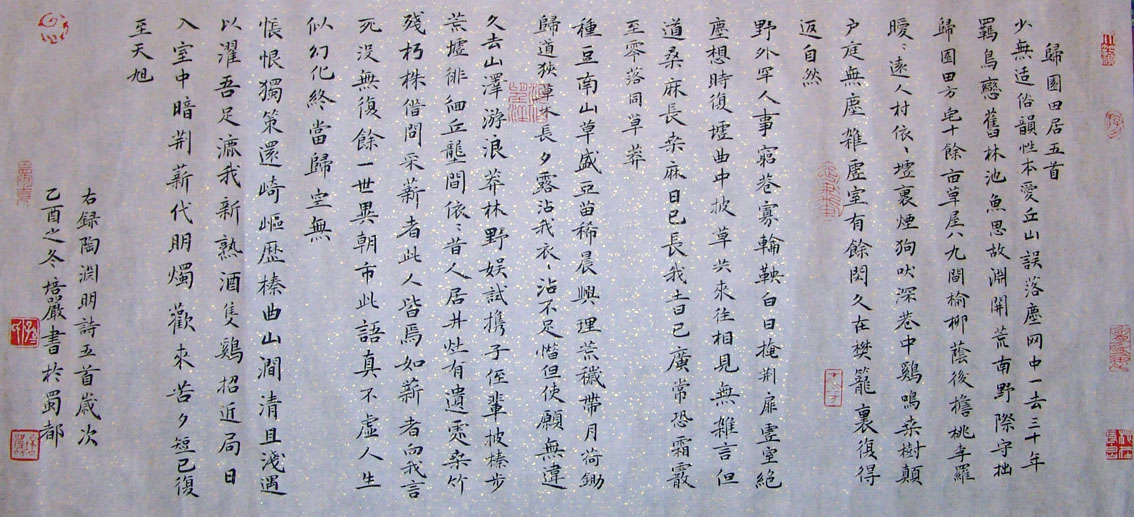 歸園田居五首
少無适俗韻性本愛丘山誤落塵网中一去三十年
羁鳥戀舊林池魚思故淵開荒南野際守拙
歸園田方宅十餘亩草屋八九間榆柳蔭後檐桃李羅
曖〻遠人村依〻墟裏煙狗吠深巷中鷄鳴桑樹顛
户庭無塵雜虛室有餘閑久在樊籠裏復得
返自然
野外罕人事窮巷寡輪鞅白日掩荆扉虛室絕
塵想時復墟曲中披草共來往相見無雜言但
道桑麻長桑麻日已長我土日已廣常恐霜霰
至零落同草莽
種豆南山草盛豆苗稀晨興理荒穢帶月荷鋤
歸道狹草木長夕露沾我衣〻沾不足惜但使願無違
久去山澤游浪莽林野娱試攜子侄輩披榛步
荒墟徘徊丘壟間依〻昔人居井灶有遺處桑竹
殘朽株借問采薪者此人皆焉如薪者向我言
死没無復餘一世異朝市此語真不虛人生
似幻化終當歸空無
悵恨獨策還崎嶇歷榛曲山澗清且淺遇
以濯吾足漉我新熟酒隻鷄招近局日
入室中暗荆薪代明燭歡來苦夕短已復
至天旭
右録陶淵明詩五首歲次
乙酉之冬培嚴書於蜀都